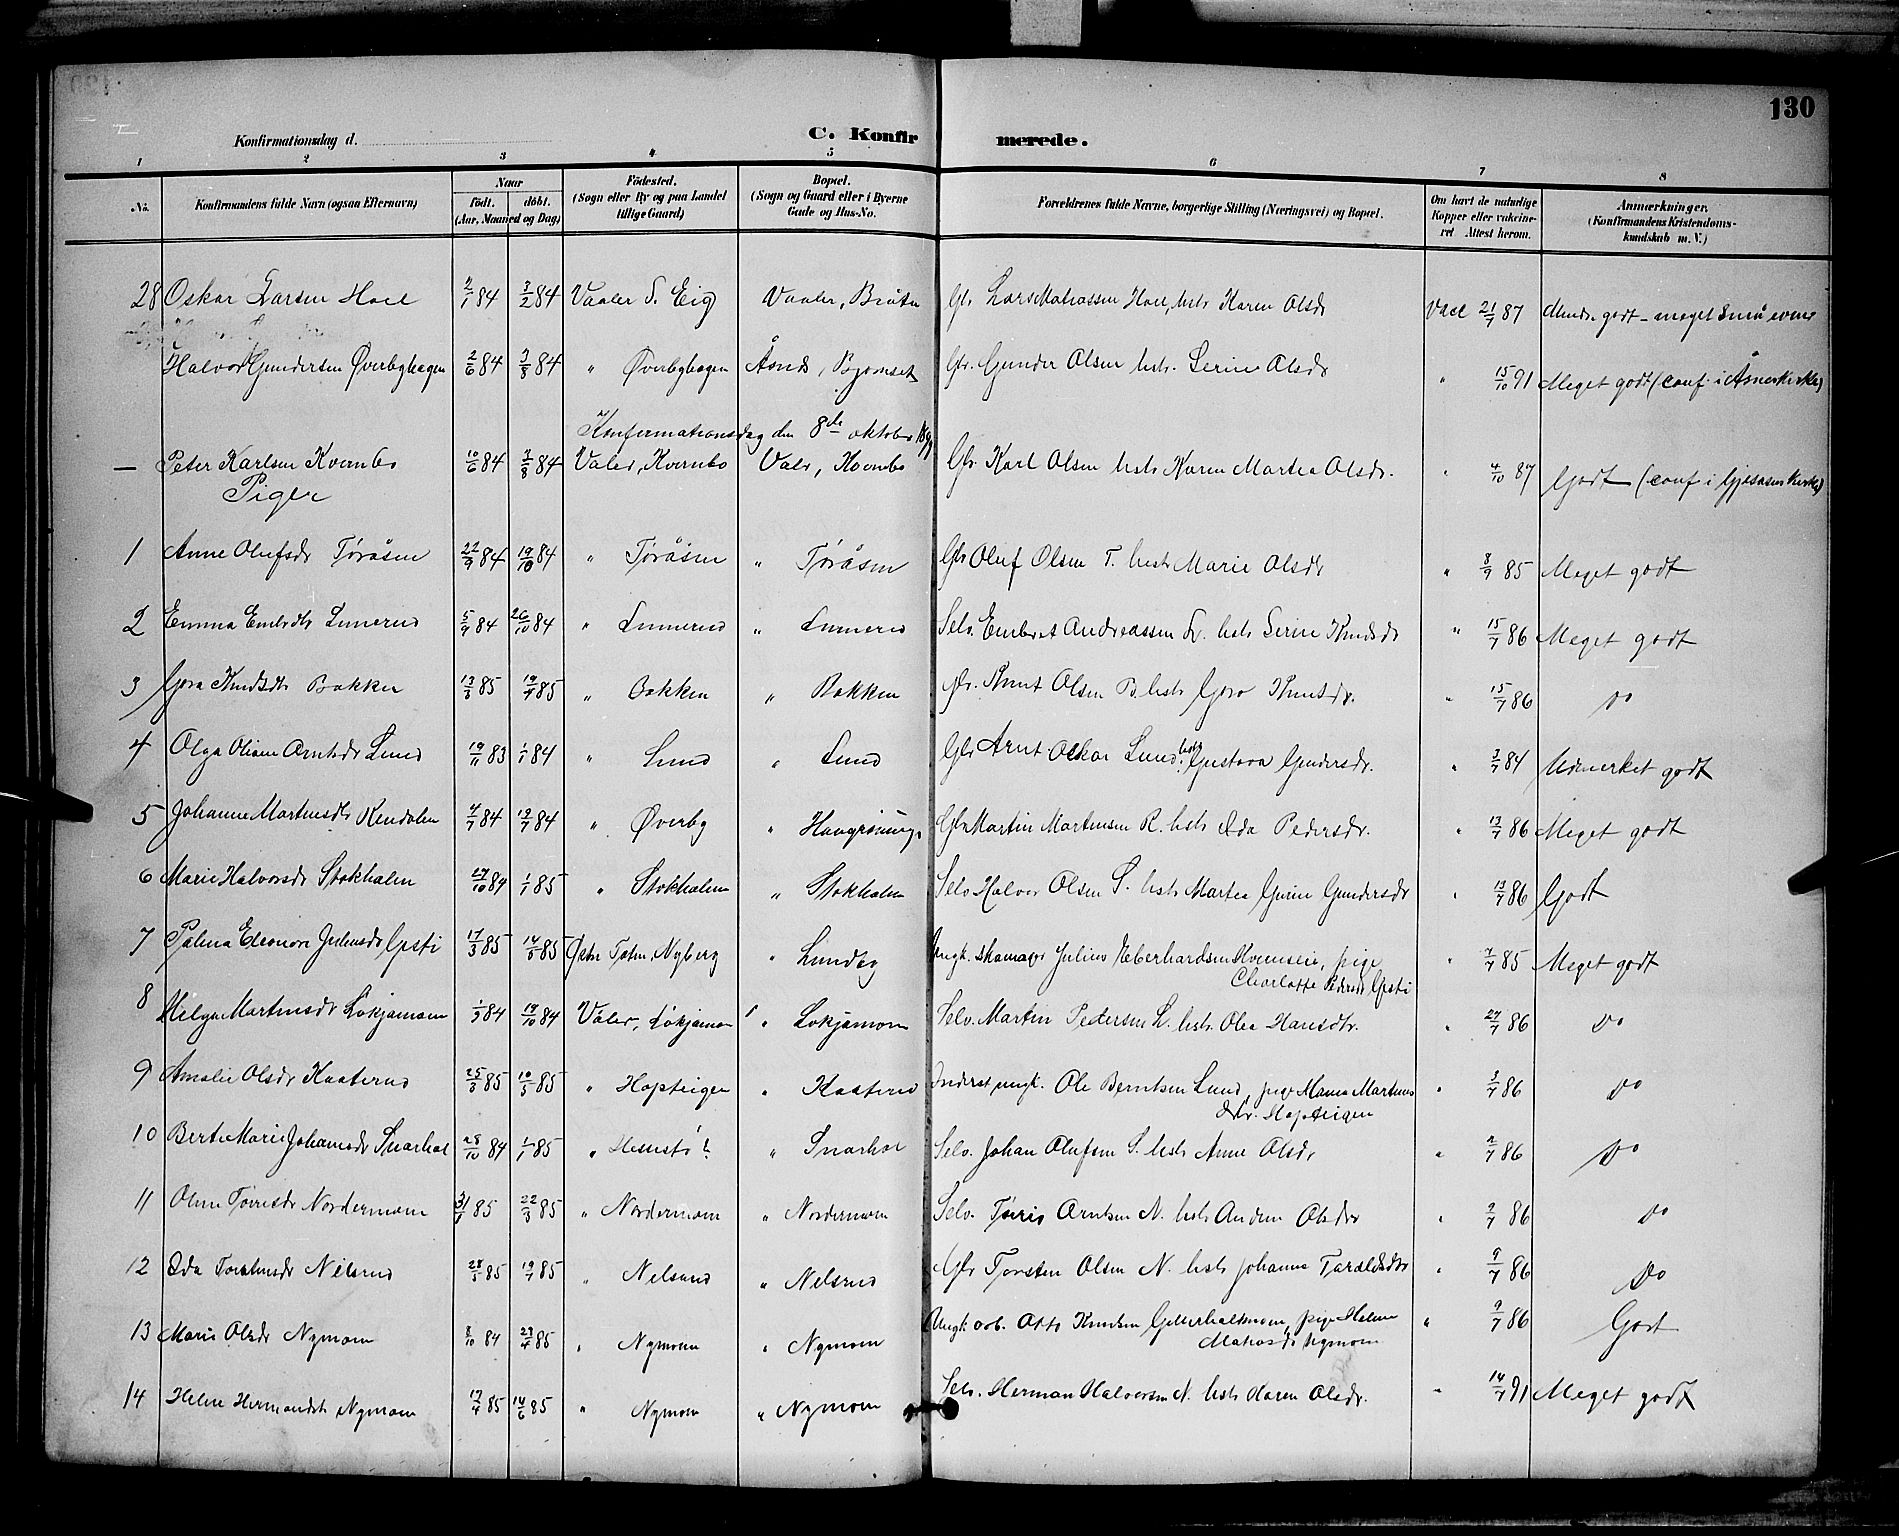 130
Konfirmationsdag d. C. Konfirmerede.
1 2 3 4 5 6 7 8
No. Konfirmandens fulde Navn (ogsaa Efternavn) Naar födt. döbt. (Aar, Maaned og Dag) Födested. (Sogn eller By og paa Landet tillige Gaard) Bopæl. (Sogn og Gaard eller i Byerne Gade og Hus-No. Forældrenes fulde Navne, borgerlige Stilling (Næringsvei) og Bopæl. Om havt de naturlige Kopper eller vakcineret Attest herom. Anmærkninger. (Konfirmandens Kristendomskundskab m. V.)
28 Oskar Larsen Hoel 2/1 84 3/2 84 Vaaler S. Eig Vaaler, Bråtn Gbr. Lars Mathiassen Hoel, hstr. Karen Olsdr Vacc 21/7 87 godt - meget små evner
Halvor Gundersen Øverbyhagen 2/6 84 3/8 84 " Øverbyhagen Åsnes, Bjørnset Gbr. Gunder Olsen hstr. Serine Olsdr " 15/10 91 Meget godt (conf. i Åsnes kirke)
Konfirmationsdag den 8de oktober 1899
— Peter Karlsen Kvernbo 10/6 84 3/8 84 Våler, Kvernbo Våler, Kvernbo Gbr Karl Olsen hstr Karen Martea Olsdr. " 4/10 87 Godt (conf i Gjesåsen kirke)
Piger
1 Anne Olufsdr Tøråsen 22/9 84 19/10 84 " Tøråsen " Tøråsen Gbr Oluf Olsen T. hstr Marie Olsdr " 8/9 85 Meget godt
2 Emma Embrtdtr Linnerud 5/9 84 26/10 84 " Linnerud " Linnerud Selv. Embret Andreassen L. hstr Serine Knudsdr " 15/7 86 Meget godt
3 Goro Knudsdtr Bakken 13/3 85 19/7 85 " Bakken " Bakken Gbr. Knut Olsen B. hstr Goro Knudsdr. " 15/7 86 Do
4 Olga Oliane Arntsdr Lund 19/11 83 1/1 84 " Lund " Lund Gbr Arnt Oskar Lund hstr. Gustava Gundersdr. " 3/7 84 Udmerket godt
5 Johanne Martinsdtr Rendalen 4/7 84 13/7 84 " Øverby " Gbr Martin Martinsen R. hstr Ida Pedersdr. " 13/7 86 Meget godt
6 Marie Halvorsdr Stokholm 27/10 84 1/1 85 " Stokholm " Stokholm Selv Halvor Olsen S. hstr Martea Gurine Gundersdr " 13/7 86 Godt
7 Palma Eleonore Juliusdr Gysti 17/3 85 14/5 85 Østre Toten, Nyberg " Lundby Ungk. skomager Julius Eberhardsen Kvemseie, pige
Charlotte Pedersdr Gysti " 7/7 85 Meget godt
8 Helga Martinsdr Løkjamoen 1/9 84 19/10 84 Våler, Løkjamoen " Løkjamoen Selv. Martin Pedersen L. hstr. Olea Hansdtr. " 27/7 86 Do
9 Amalie Olsdr Kaaterud 25/3 85 10/5 85 " Hopteigen " Kaaterud Inderst ungk. Ole Berntsen Lund, pige Maren Martins
dtr. Hopteigen " 3/7 86 Do
10 Berte Marie Johansdr Snarhol 28/10 84 1/1 85 " " Snarhol Selv. Johan Olufsen S. hstr Anne Olsdr " 2/7 86 Do
11 Oline Tørrisdr Nordermoen 31/1 85 22/3 85 " Nordermoen " Nordermoen Selv. Tørris Arntsen N. hstr Andrea Olsdr " 2/7 86 Do
12 Ida Torstensdr Nelsrud 28/5 85 19/7 85 " Nelsrud " Nelsrud Gbr Torsten Olsen N. hstr Johanne Taraldsdtr " 9/7 86 Do
13 Marie Olsdr Nymoen 8/10 84 27/4 85 " Nymoen " Nymoen Ungk. arb. Otto Knudsen, pige Helene
Mathiasdr Nymoen " 9/7 86 Godt
14 Helene Hermandsdtr Nymoen 17/4 85 14/6 85 " Nymoen " Nymoen Selv. Herman Halvorsen N. hstr Karen Olsdr. " 14/7 91 Meget godt